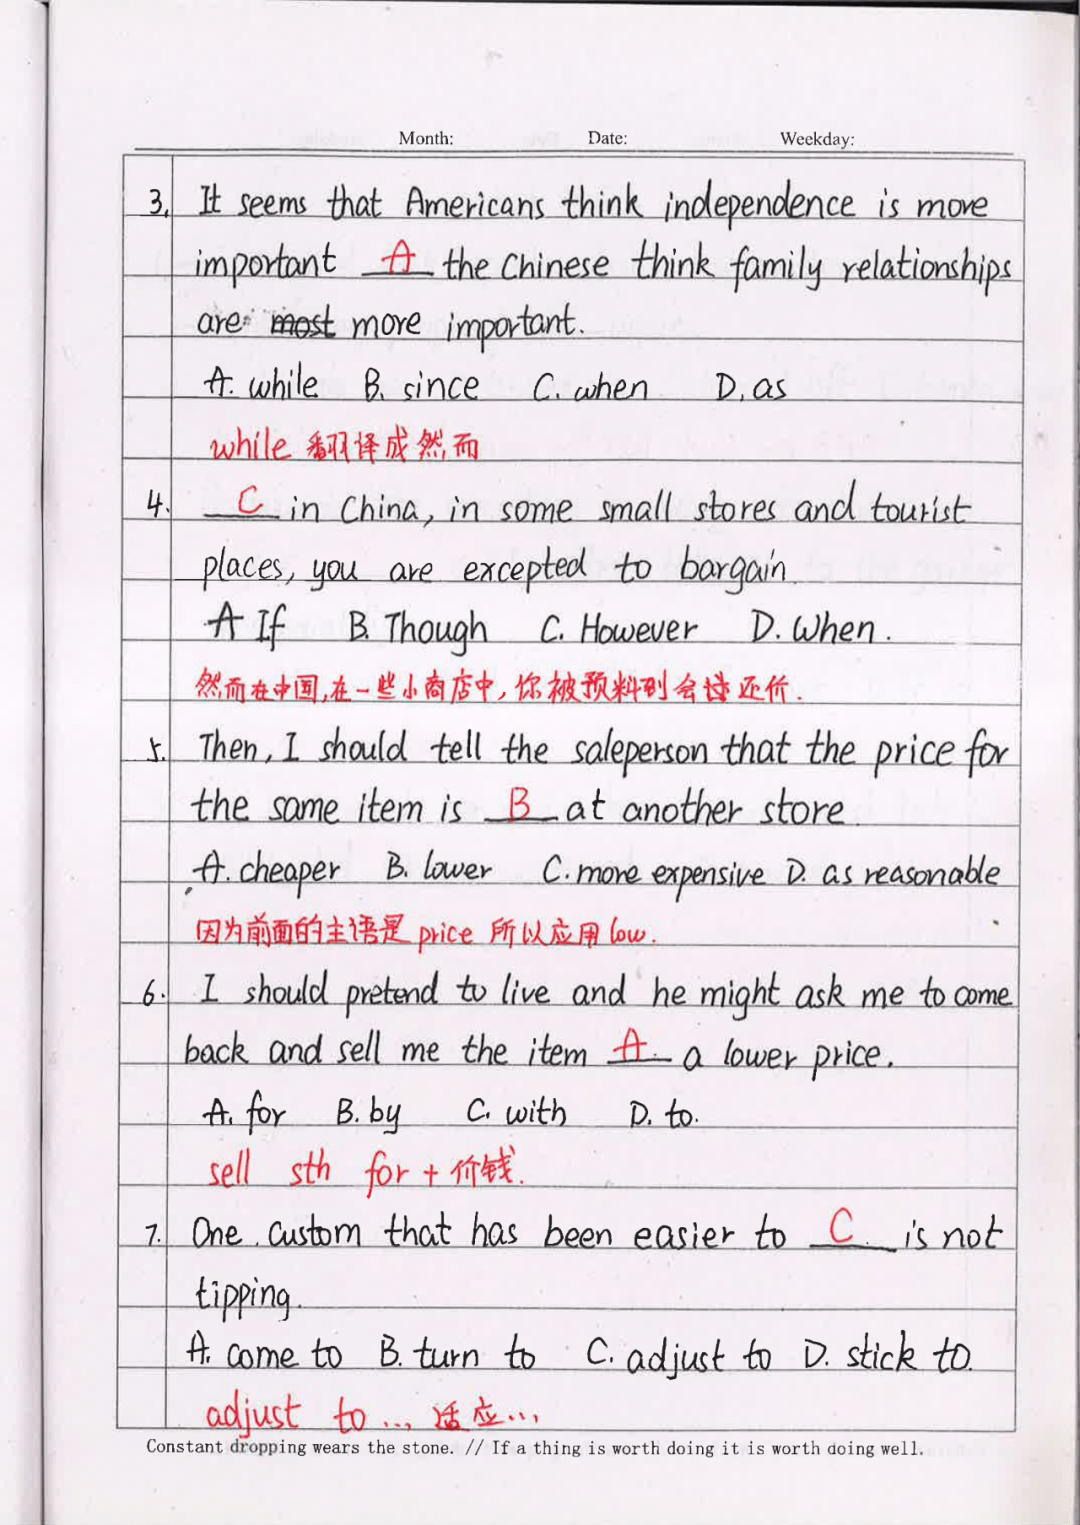 Month: Date: Weekday:
3. It seems that Americans think independence is more
important A the Chinese think family relationships
are most more important.
A. while B. since C. when D. as
while 翻译成然而
4. C in China, in some small stores and tourist
places, you are excepted to bargain
A If B. Though C. However D. When.
然而在中国,在一些小商店中,你被预料到会讨还价.
5. Then, I should tell the saleperson that the price for
the same item is B at another store
A. cheaper B. lower C. more expensive D. as reasonable
因为前面的主语是 price 所以应用 low.
6. I should pretend to live and he might ask me to come
back and sell me the item A. a lower price.
A. for B. by C. with D. to.
sell sth for + 价钱.
7. One custom that has been easier to C is not
tipping.
A. come to B. turn to C. adjust to D. stick to.
adjust to ... 适应...
Constant dropping wears the stone. // If a thing is worth doing it is worth doing well.